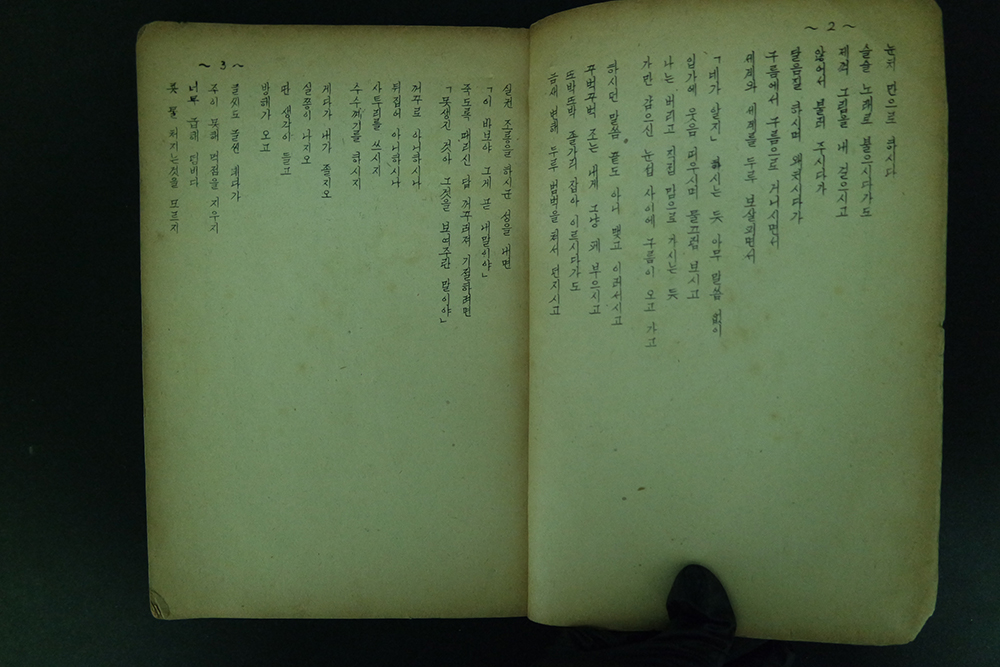 ~ 2 ~
눈치 만으로 하시다
슬슬 노래로 불으시다가도
제처 그림을 내 걸으시고
앉어서 불러 주시다가
달음질 하시며 왜치시다가
구름에서 구름으로 거니시면서
세계와 세계를 두루 보살피면서
「네가 알지」 하시는 듯 아무 말씀 없이
입가에 웃음 띠우시며 물끄럼 보시고
나는 버리고 가진 맘으로 가시는 듯
가만 감으신 눈섭 사이에 구름이 오고 가고
하시던 말씀 끝도 아니 맺고 이러서시고
꾸벅꾸벅 조는 내게 그냥 꽤 부으시고
또박또박 줄가리 잡아 이르시다가도
금새 변해 두루 범벅을 처서 던지시고
~ 3 ~
실컷 조롱을 하시군 성을 내면
「이 바보야 그게 곧 내말이야」
죽도록 때리신 담 꺼꾸러져 기절하려면
「못생긴 것아 그것을 보여주란 말이야」
꺼꾸로 아니하시나
뒤집어 아니하시나
사투리를 쓰시지
수수꺼기를 하시지
게다가 내가 줄지오
실쯩이 나지오
딴 생각이 들고
방해가 오고
글씨도 줄씬 게다가
종이 못해 먹점을 지우지
너무 곱해 덤비다
못 펼처지는것을 모르지